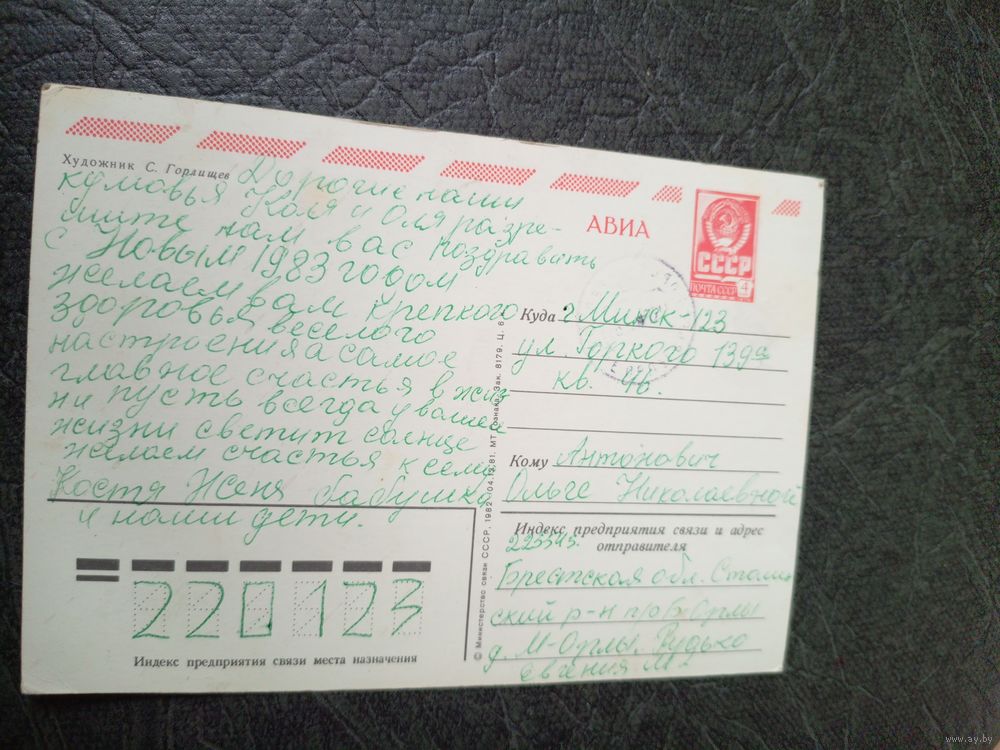 Художник С. Горлищев
Дорогие наши
кумовья Коля и Оля разре-
шите нам вас поздравить
с Новым 1983 годом
желаем вам крепкого
здоровья веселого
настроения а самое
главное счастья в жиз
ни пусть всегда у вашей
жизни светит солнце
желаем счастья к семе
Костя Женя бабушка
и наши дети.
АВИА
СССР
ПОЧТА СССР
4
Куда г Минск-123
ул. Горкого 139
кв. 46.
Кому Антонович
Ольге Николаевной
Индекс предприятия связи и адрес
отправителя
Брестская обл. Столин
ский р-н п/о Б-Орлы
д. М-Орлы. Рудько
евгения М
© Министерство связи СССР. 1982
МТ Гознака. Зак. 8179. Ц. 6
220123
Индекс предприятия связи места назначения
www.ay.by